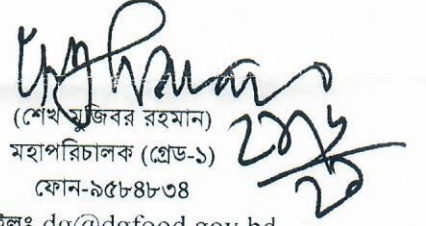 (শেখ মুজিবর রহমান)
মহাপরিচালক (গ্রেড-১)
ফোন-৯৫৮৪৮৩৪
ইলঃ dg@dgfood.gov.bd